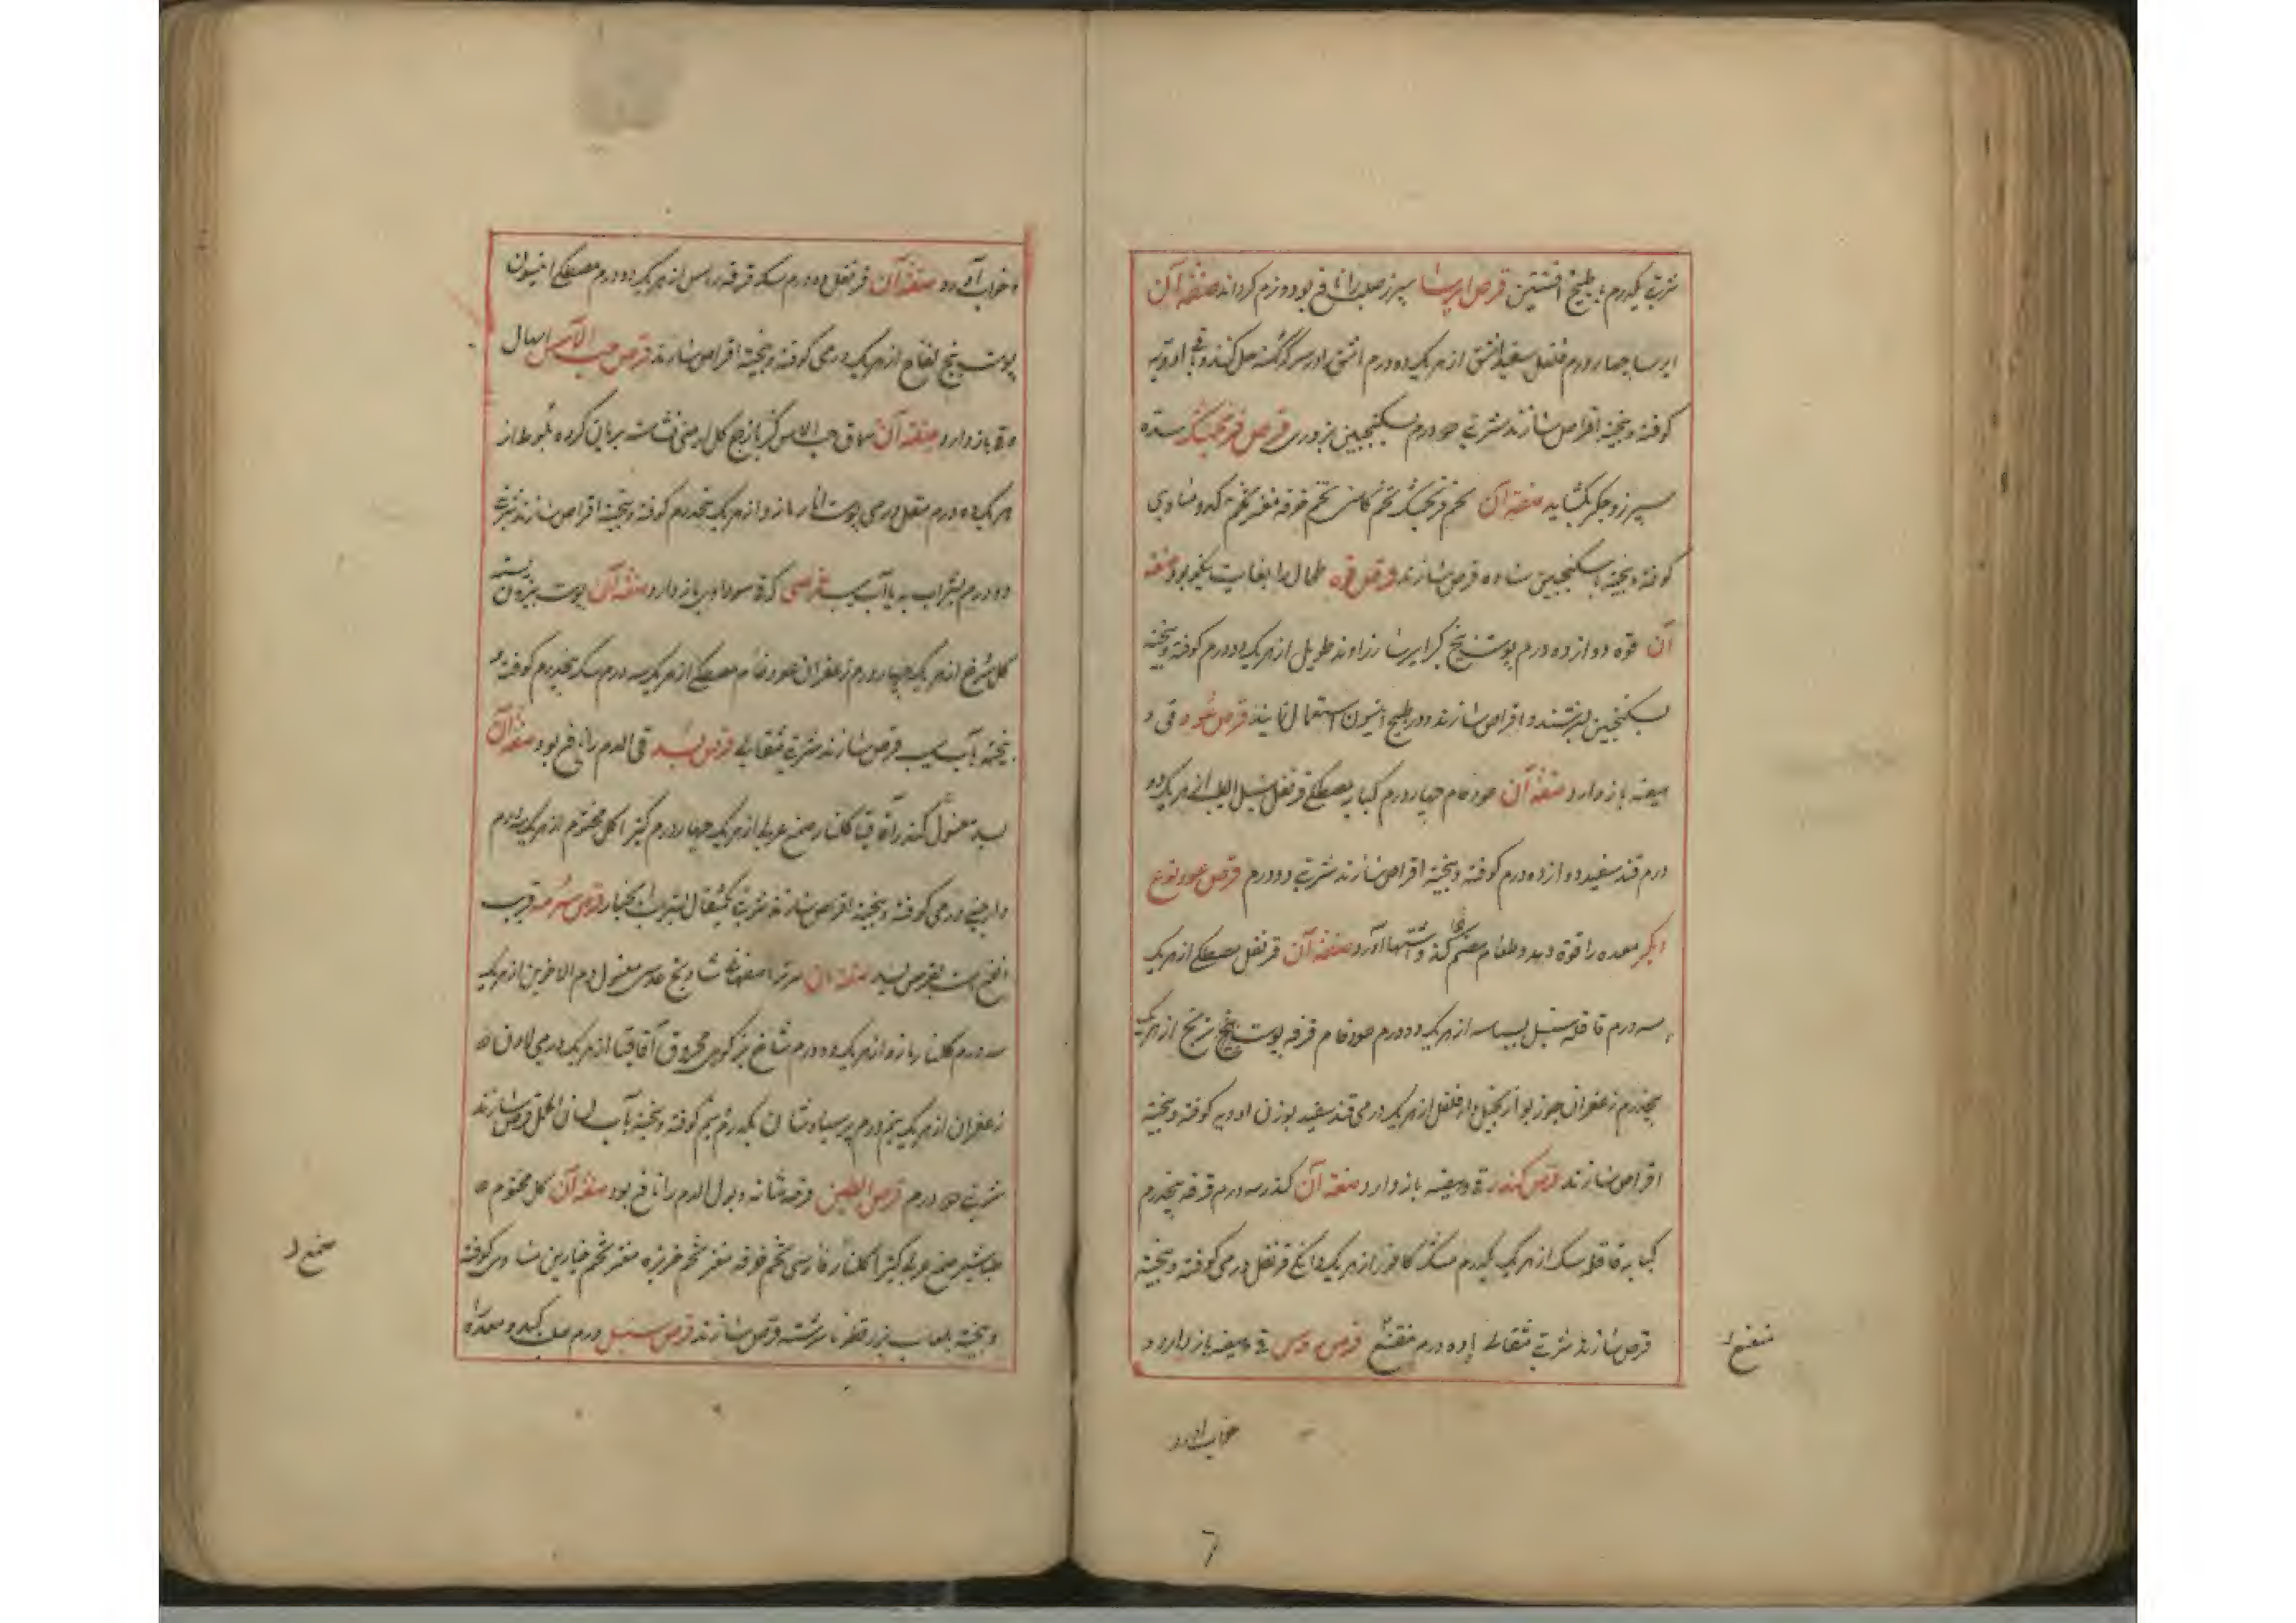 شربتی یکدرم با طبیخ افسنتین قرص ایرسا سپرز صلب را نافع بود و نرم گرداند صفة آن
ایرسا چهار درم فلفل سفید اشق از هر یک ده درم اشق را در سرکه حل کنند و باقی ادویه
کوفته و بیخته اقراص سازند شربتی دو درم بسکنجبین بزوری قرص فنجنکشت سده
سپرز و جگر بگشاید صفة آن تخم فنجنکشت تخم کاسنی تخم خرفه مغز تخم کدو مساوی
کوفته و بیخته با سکنجبین ساده قرص سازند قرص فوه طحال را بغایت نیکو بود صفة
آن فوه دوازده درم پوست بیخ کبر ایرسا زراوند طویل از هر یک دو درم کوفته و بیخته
بسکنجبین بسرشند و اقراص سازند و در طبیخ انیسون استعمال نمایند قرص عود قی و
هیضه باز دارد صفة آن عود خام چهار درم کبابه مصطکی قرنفل سنبل الطیب از هر یک دو
درم قند سفید دوازده درم کوفته و بیخته اقراص سازند شربتی دو درم قرص عود نوع
دیگر معده را قوة دهد و طعام هضم کند و اشتها آورد صفة آن قرنفل مصطکی از هر یک
سه درم قاقله سنبل بسباسه از هر یک دو درم عود خام قرفه پوست ترنج از هر یک
پنجدرم زعفران جوز بوا زنجبیل دارفلفل از هر یک درمی قند سفید بوزن ادویه کوفته و بیخته
اقراص سازند قرص کندر قی و هیضه باز دارد صفة آن کندر سه درم قرفه پنجدرم
کبابه قاقله سک از هر یک یکدرم مشک کافور از هر یک دانگی قرنفل درمی کوفته و بیخته
قرص سازند شربتی مثقالی با ده درم قی و هیضه باز دارد و
خواب آورد
و خواب آورد صفة آن قرنفل دو درم سک قرفه راسن از هر یک دو درم مصطکی انیسون
پوست بیخ لفاح از هر یک درمی کوفته و بیخته اقراص سازند قرص حب الآس اسهال
و قی باز دارد صفة آن سماق حب الاس کزمازج گل ارمنی نشاسته بریان کرده بلوط از
هر یک ده درم مقل درمی پوست انار مازو از هر یک پنجدرم کوفته و بیخته اقراص سازند شربتی
دو درم بشراب به یا آب سیب قرصی که قی سوداوی باز دارد صفة آن پوست بیرون پسته
گل سرخ از هر یک چهار درم زعفران عود خام مصطکی از هر یک سه درم سک پنجدرم کوفته و
بیخته بآب سیب قرص سازند شربتی مثقالی قرص بسد قی الدم را نافع بود صفة آن
بسد مغسول کندر آقاقیا گلنار صمغ عربی از هر یک چهار درم کتیرا گل مختوم از هر یک سه درم
دارچینی درمی کوفته و بیخته اقراص سازند شربتی یکمثقال بشراب انجبار قرص سرمه قریب
النفع است بقرص بسد صفة آن سرمه اصفهانی شادنج عدسی مغسول دم الاخوین از هر یک
سه درم گلنار مازو از هر یک دو درم شاخ بز کوهی محروق آقاقیا از هر یک درمی لادن
زعفران از هر یک نیم درم پر سیاوشان یکدرم و نیم کوفته و بیخته بآب لسان الحمل قرص سازند
شربتی دو درم قرص الطین قرحه مثانه و بول الدم را نافع بود صفة آن گل مختوم
طباشیر صمغ عربی کتیرا گلنار فارسی تخم خرفه مغز تخم خرپزه مغز تخم خیارین مساوی کوفته
و بیخته بلعاب بزرقطونا سرشته قرص سازند قرص سنبل ورم صلب کبد و معده